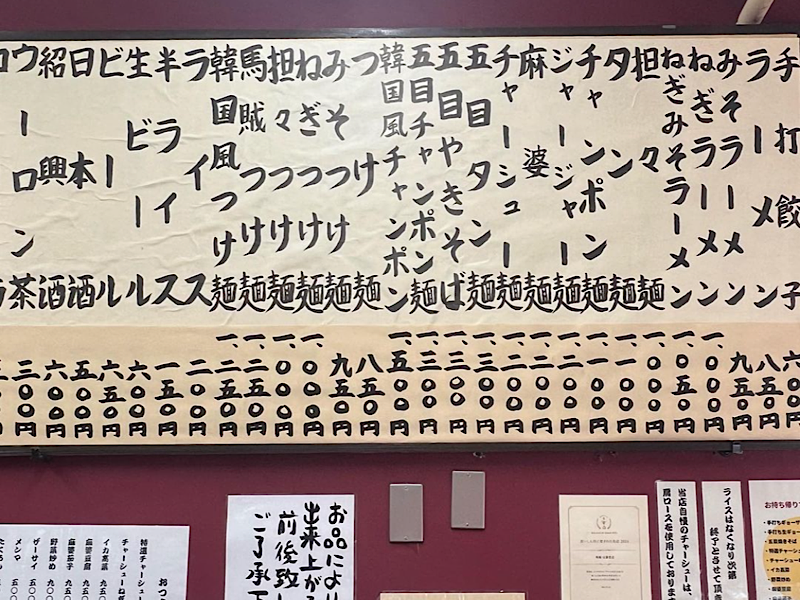 手打餃子 六〇〇円
ラーメン 八五〇円
みそラーメン 九五〇円
ねぎラーメン 一、〇〇〇円
ねぎみそラーメン 一、〇五〇円
担々麺 一、〇〇〇円
タン麺 一、一〇〇円
チャンポン麺 一、一〇〇円
ジャージャー麺 一、二〇〇円
麻婆麺 一、二〇〇円
チャーシュー麺 一、二〇〇円
五目タン麺 一、三〇〇円
五目やきそば 一、三〇〇円
五目チャンポン麺 一、三〇〇円
韓国風チャンポン 一、五〇〇円
つけ麺 八五〇円
みそつけ麺 九五〇円
ねぎつけ麺 一、〇〇〇円
担々つけ麺 一、〇〇〇円
馬賊つけ麺 一、二五〇円
韓国風つけ麺 一、二五〇円
ライス 二〇〇円
半ライス 一五〇円
生ビール 六〇〇円
ビール 六五〇円
日本酒 五〇〇円
紹興酒 六〇〇円
ウーロン茶 三〇〇円
お持ち帰り
ライスはなくなり次第
終了とさせて頂き
当店自慢のチャーシューは、
肩ロースを使用しておりま
お品により
出来上がる
前後致し
ご了承下
おつ
特選チャーシュー
チャーシューねぎ
イカ高菜
麻婆豆腐 九五〇
麻婆茄子 九五〇
野菜炒め 九〇
ザーサイ 五〇〇
メンマ 五〇〇